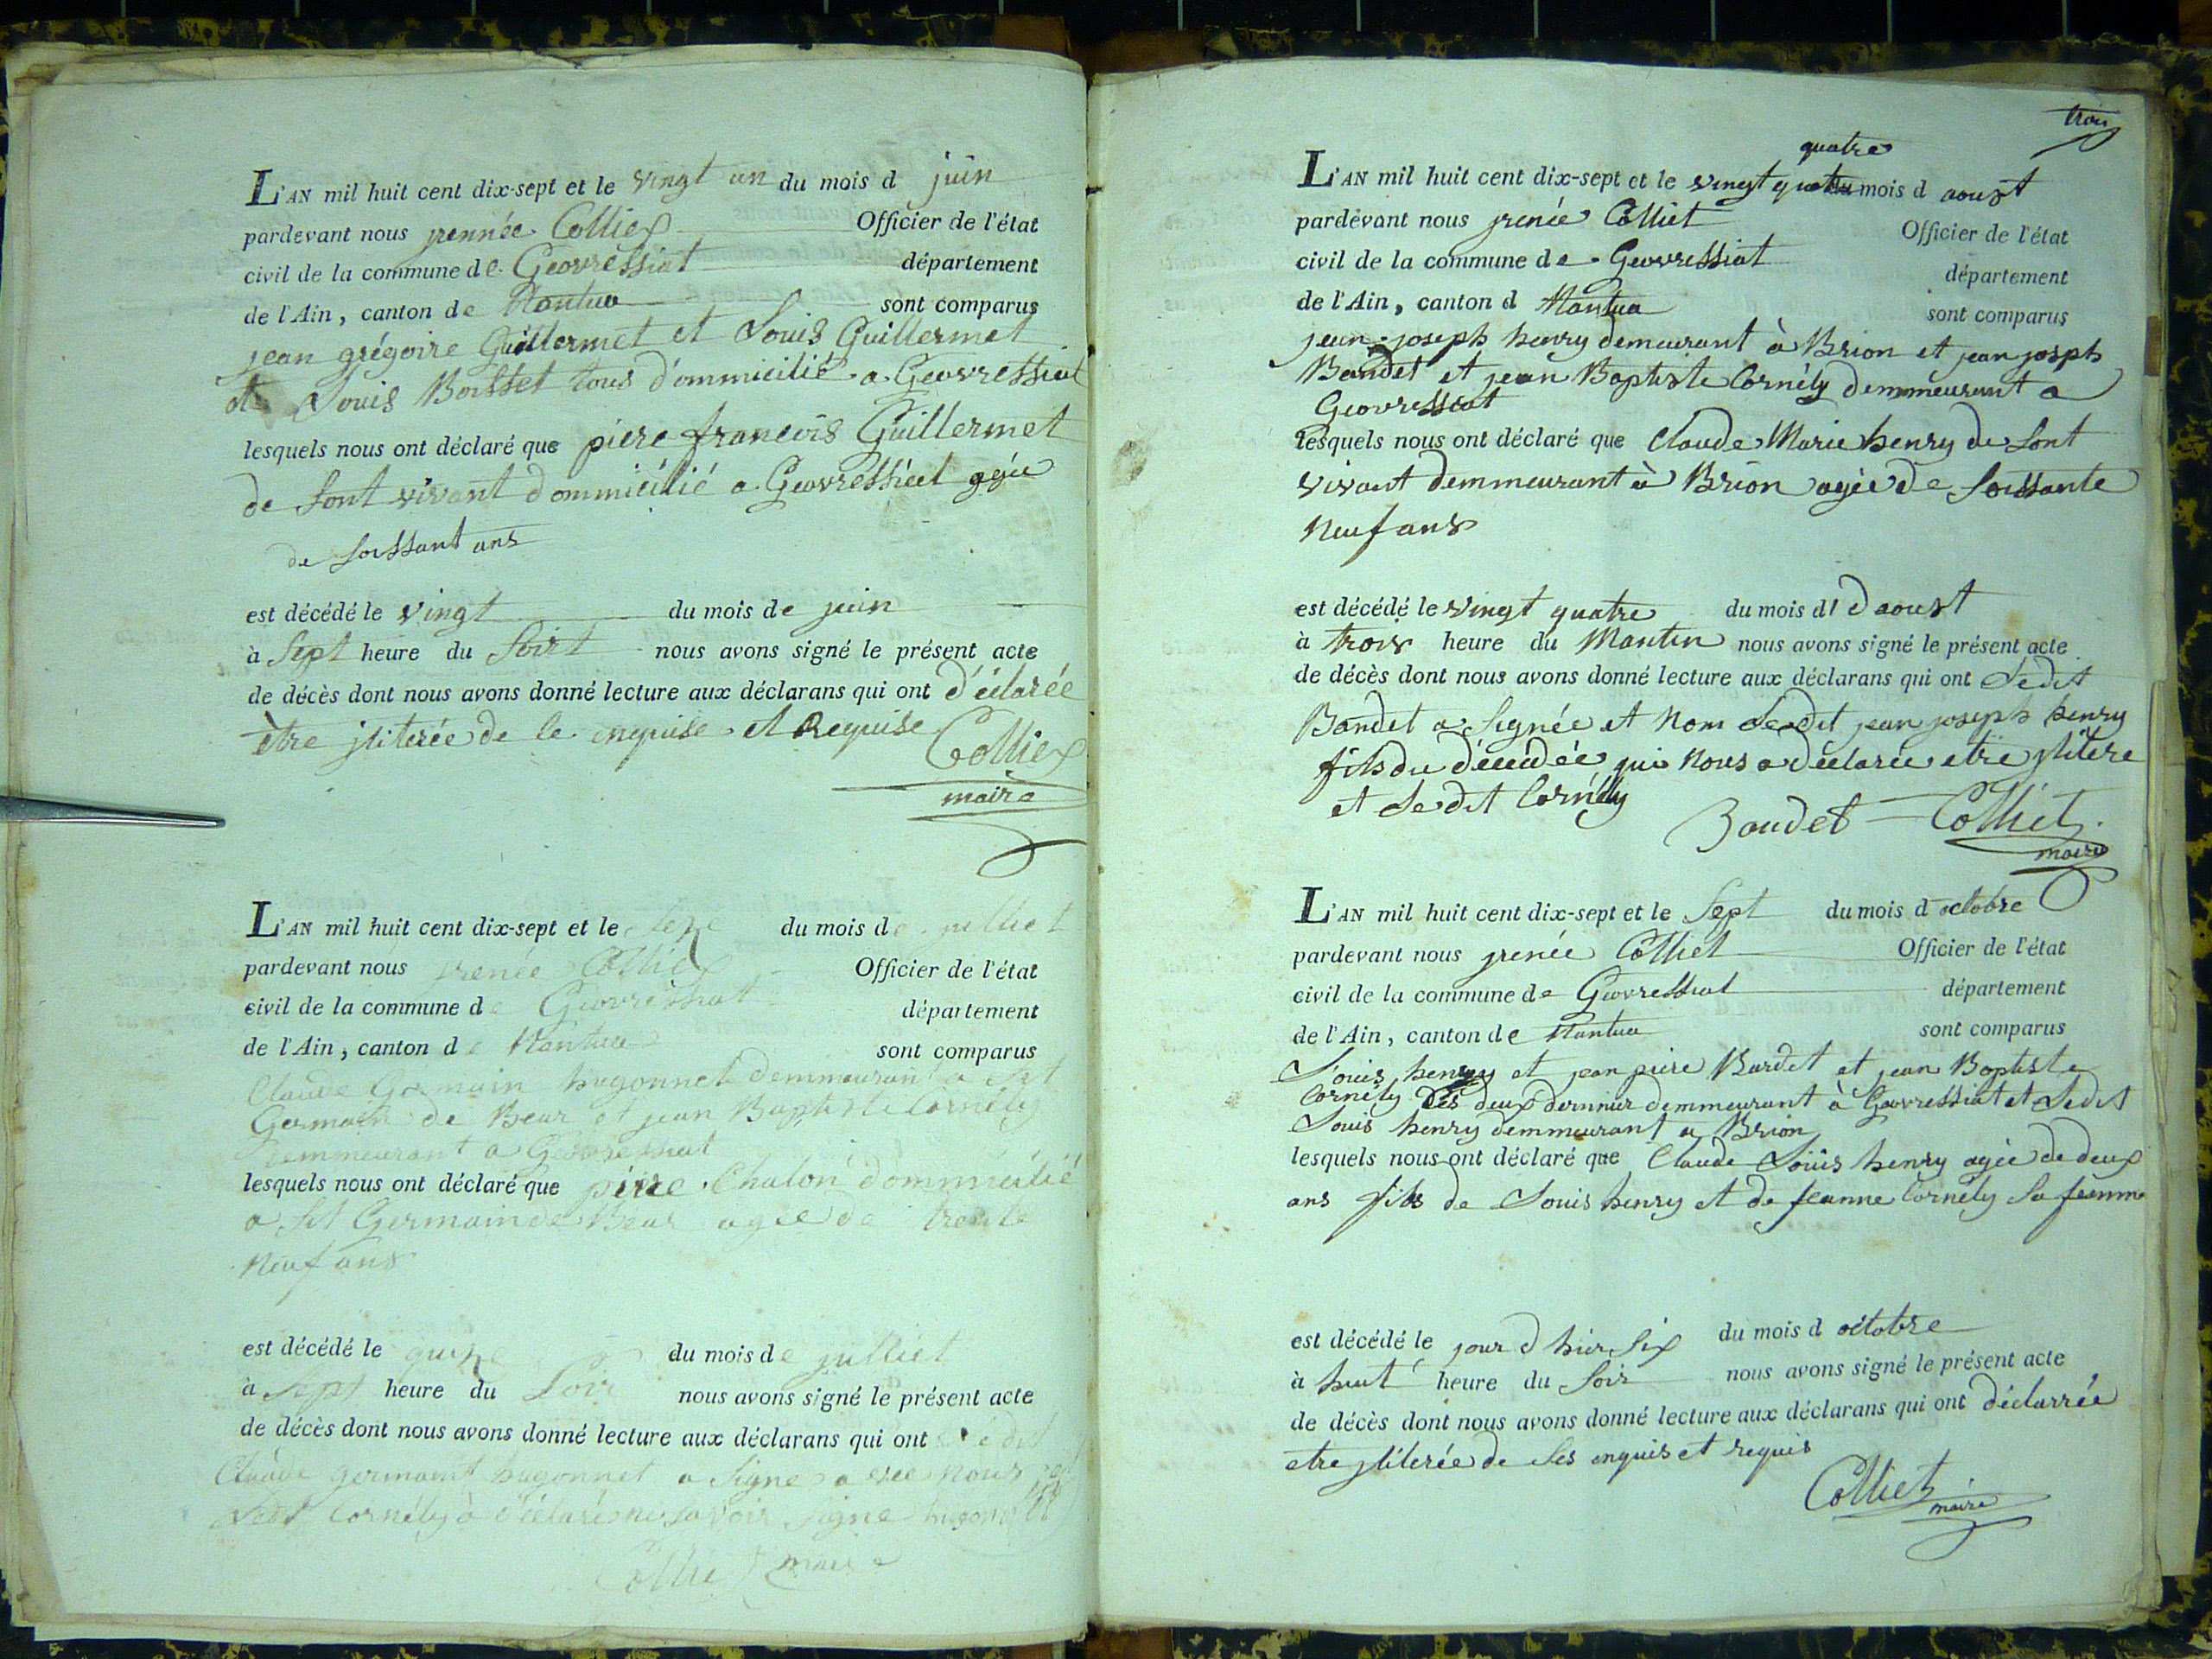 L'AN mil huit cent dix-sept et le vingt un du mois d juin
pardevant nous jrennée Colliex Officier de l'état
civil de la commune de Geovressiat département
de l'Ain, canton de Nantua sont comparus
jean grégoire Guillermet et Louis Guillermet
et Louis Boisset tous d'ommicilié a Geovressiat
lesquels nous ont déclaré que piere francois Guillermet
de font vivant dommicilié a Geovressieat
de soissant ans
est décédé le vingt du mois de juin
à Sept heure du Soirt nous avons signé le présent acte
de décès dont nous avons donné lecture aux déclarans qui ont d'éclarée
être jliterée de le enquise et Requise Colliex
maire
L'AN mil huit cent dix-sept et le du mois de julliet
pardevant nous jrenée Colliex Officier de l'état
civil de la commune de Geovressiat département
de l'Ain, canton de Nantua sont comparus
Claude Germain hugonnet demmeurant a st
Germain de Bear et jean Baptiste Cornély
demmeurant a Geovressiat
lesquels nous ont déclaré que piere Chalon dommicilié
a st Germain de Bear agée de trente
neuf ans
est décédé le du mois de julliet
à Sept heure du Soir nous avons signé le présent acte
de décès dont nous avons donné lecture aux déclarans qui ont ledit
Claude germaint hugonnet a Signe avec nous
Ledit Cornély à déclaré ne savoir Signe
Collie maire
trois
quatre
L'AN mil huit cent dix-sept et le vingt quatre du mois d aoust
pardevant nous jrenée Colliet Officier de l'état
civil de la commune de Geovressiat département
de l'Ain, canton d Nantua sont comparus
jean joseph henry demeurant à Brion et jean josph
Baudet et jean Baptiste Cornély demmeurant a
Geovressiat
lesquels nous ont déclaré que Claude Marie henry de font
vivant demmeurant à Brion agée de soissante
neuf ans
est décédé le vingt quatre du mois d' d aoust
à trois heure du Mantin nous avons signé le présent acte
de décès dont nous avons donné lecture aux déclarans qui ont Ledit
Baudet a Signée et Nom Ledit jean joseph henry
fils du décédée qui nous a déclarée etre jlitere
et Ledit Cornély
Baudet Colliet
maire
L'AN mil huit cent dix-sept et le Sept du mois d octobre
pardevant nous jrenée Colliet Officier de l'état
civil de la commune de Geovressiat département
de l'Ain, canton de Nantua sont comparus
Louis henry et jean piere Baudet et jean Baptiste
Cornély Les deux dernier demmeurant à Geovressiat et Ledit
Louis henry demmeurant a Brion
lesquels nous ont déclaré que Claude Louis henry agée de deux
ans fils de Louis henry et de Jeanne Cornély Sa femme
est décédé le jour d hier Six du mois d octobre
à huit heure du Soir nous avons signé le présent acte
de décès dont nous avons donné lecture aux déclarans qui ont déclarrée
etre jliterée de Ses enquis et requis
Colliet maire